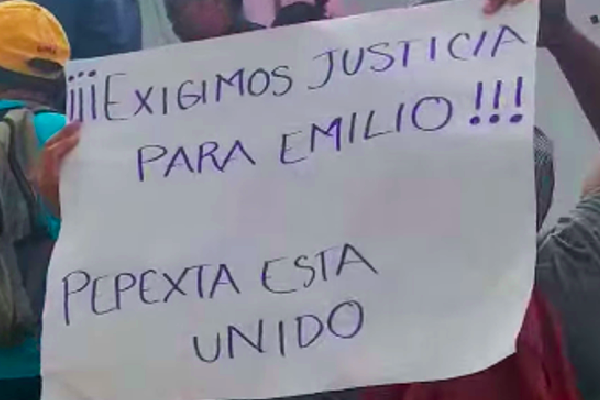 ¡¡¡EXIGIMOS JUSTICIA
PARA EMILIO!!!
PEPEXTA ESTA
UNIDO